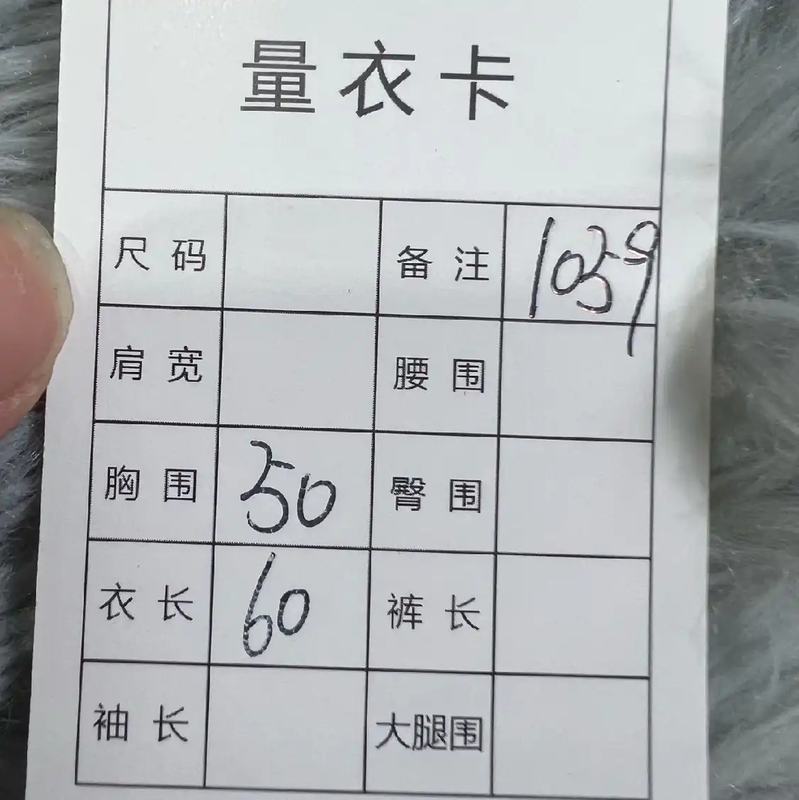 量衣卡
尺码 备注 1059
肩宽 腰围
胸围 50 臀围
衣长 60 裤长
袖长 大腿围